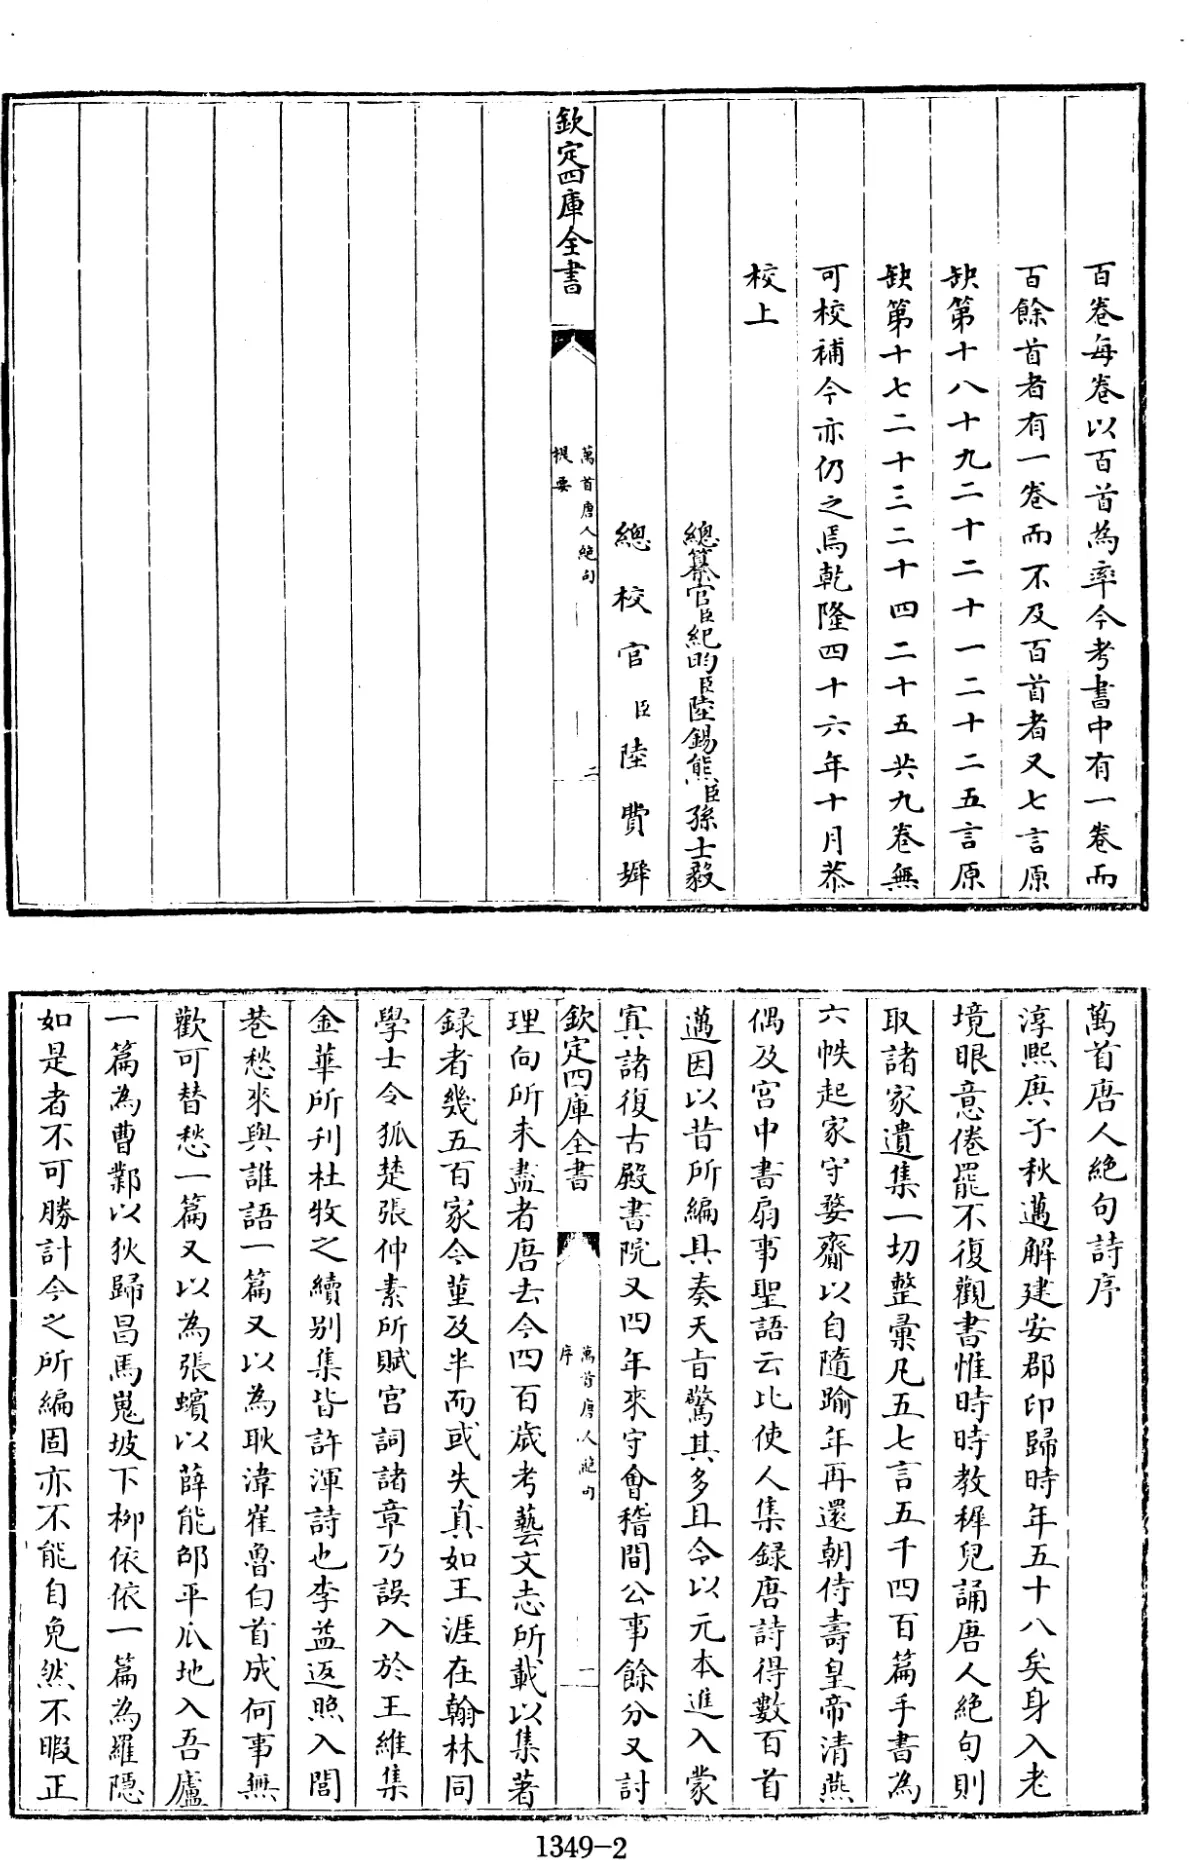 百卷每卷以百首為率今考書中有一卷而
百餘首者有一卷而不及百首者又七言原
缺第十八十九二十二十一二十二五言原
缺第十七二十三二十四二十五共九卷無
可校補今亦仍之焉乾隆四十六年十月恭
校上
總纂官臣紀昀臣陸錫熊臣孫士毅
總校官臣陸費墀
欽定四庫全書
萬首唐人絶句
提要
二
萬首唐人絶句詩序
淳熙庚子秋邁解建安郡印歸時年五十八矣身入老
境眼意倦罷不復觀書惟時時教稺兒誦唐人絶句則
取諸家遺集一切整彙凡五七言五千四百篇手書為
六帙起家守婺齋以自隨踰年再還朝侍壽皇帝清燕
偶及宫中書扇事聖語云比使人集録唐詩得數百首
邁因以昔所編具奏天旨驚其多且令以元本進入蒙
寘諸復古殿書院又四年來守會稽間公事餘分又討
欽定四庫全書
萬首唐人絶句
序
一
理向所未盡者唐去今四百歲考藝文志所載以集著
録者幾五百家今堇及半而或失真如王涯在翰林同
學士令狐楚張仲素所賦宫詞諸章乃誤入於王維集
金華所刋杜牧之續别集皆許渾詩也李益返照入閭
巷愁來與誰語一篇又以為耿湋崔魯白首成何事無
歡可替愁一篇又以為張蠙以薛能邵平瓜地入吾廬
一篇為曹鄴以狄歸昌馬嵬坡下柳依依一篇為羅隱
如是者不可勝計今之所編固亦不能自免然不暇正
1349-2